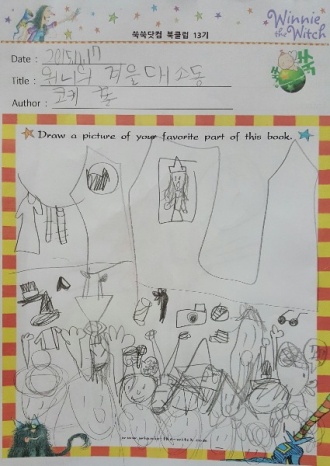 쑥쑥닷컴 북클럽 13기
Winnie the Witch
Date : 2015/1/17
Title : 위니의 겨울 대소동
Author : 코키 폴
Draw a picture of your favorite part of this book.